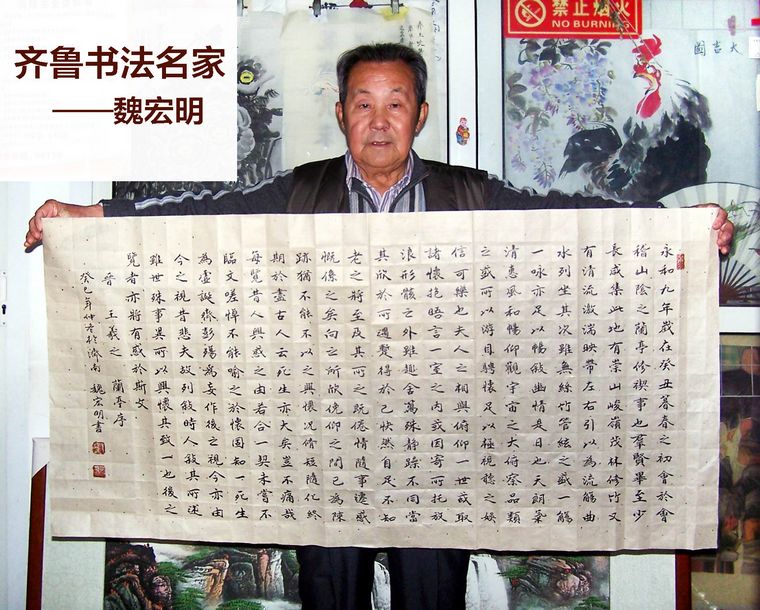 齐鲁书法名家
——魏宏明
禁止烟火
NO BURNING
大吉圖
永和九年歲在癸丑暮春之初會於會
稽山陰之蘭亭修禊事也羣賢畢至少
長咸集此地有崇山峻嶺茂林修竹又
有清流激湍映帶左右引以為流觴曲
水列坐其次雖無絲竹管絃之盛一觴
一咏亦足以暢敘幽情是日也天朗氣
清惠風和暢仰觀宇宙之大俯察品類
之盛所以游目騁懷足以極視聽之娛
信可樂也夫人之相與俯仰一世或取
諸懷抱晤言一室之內或因寄所托放
浪形骸之外雖趣舍萬殊靜躁不同當
其欣於所遇暫得於己快然自足不知
老之將至及其所之既倦情隨事遷感
慨係之矣向之所欣俛仰之間已為陳
跡猶不能不以之興懷況脩短隨化終
期於盡古人云死生亦大矣豈不痛哉
每覽昔人興感之由若合一契未嘗不
臨文嗟悼不能喻之於懷固知一死生
為虛誕齊彭殤為妄作後之視今亦由
今之視昔悲夫故列敘時人敘其所述
雖世殊事異所以興懷其致一也後之
覽者亦將有感於斯文
晉 王羲之 蘭亭序
癸巳年仲冬於濟南 魏宏明書